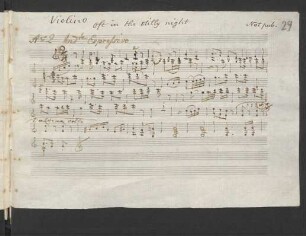 Violino oft in the stilly night Not pub. 29
No 2 And.te Espressivo